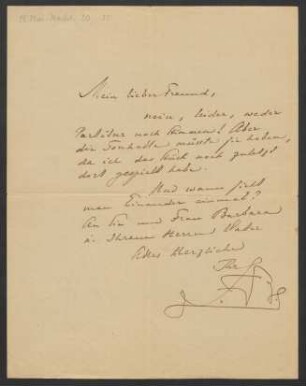 Mein lieber Freund,
nein, leider, weder
Partitur noch Stimmen! Aber
die Tonhalle müsste sie haben,
da ich das Stück noch zuletzt
dort gespielt habe.
Und wann sieht
man Einander einmal?
An Sie und Frau Barbara
u. Ihrem Herrn Vater
Alles Herzliche
Ihr